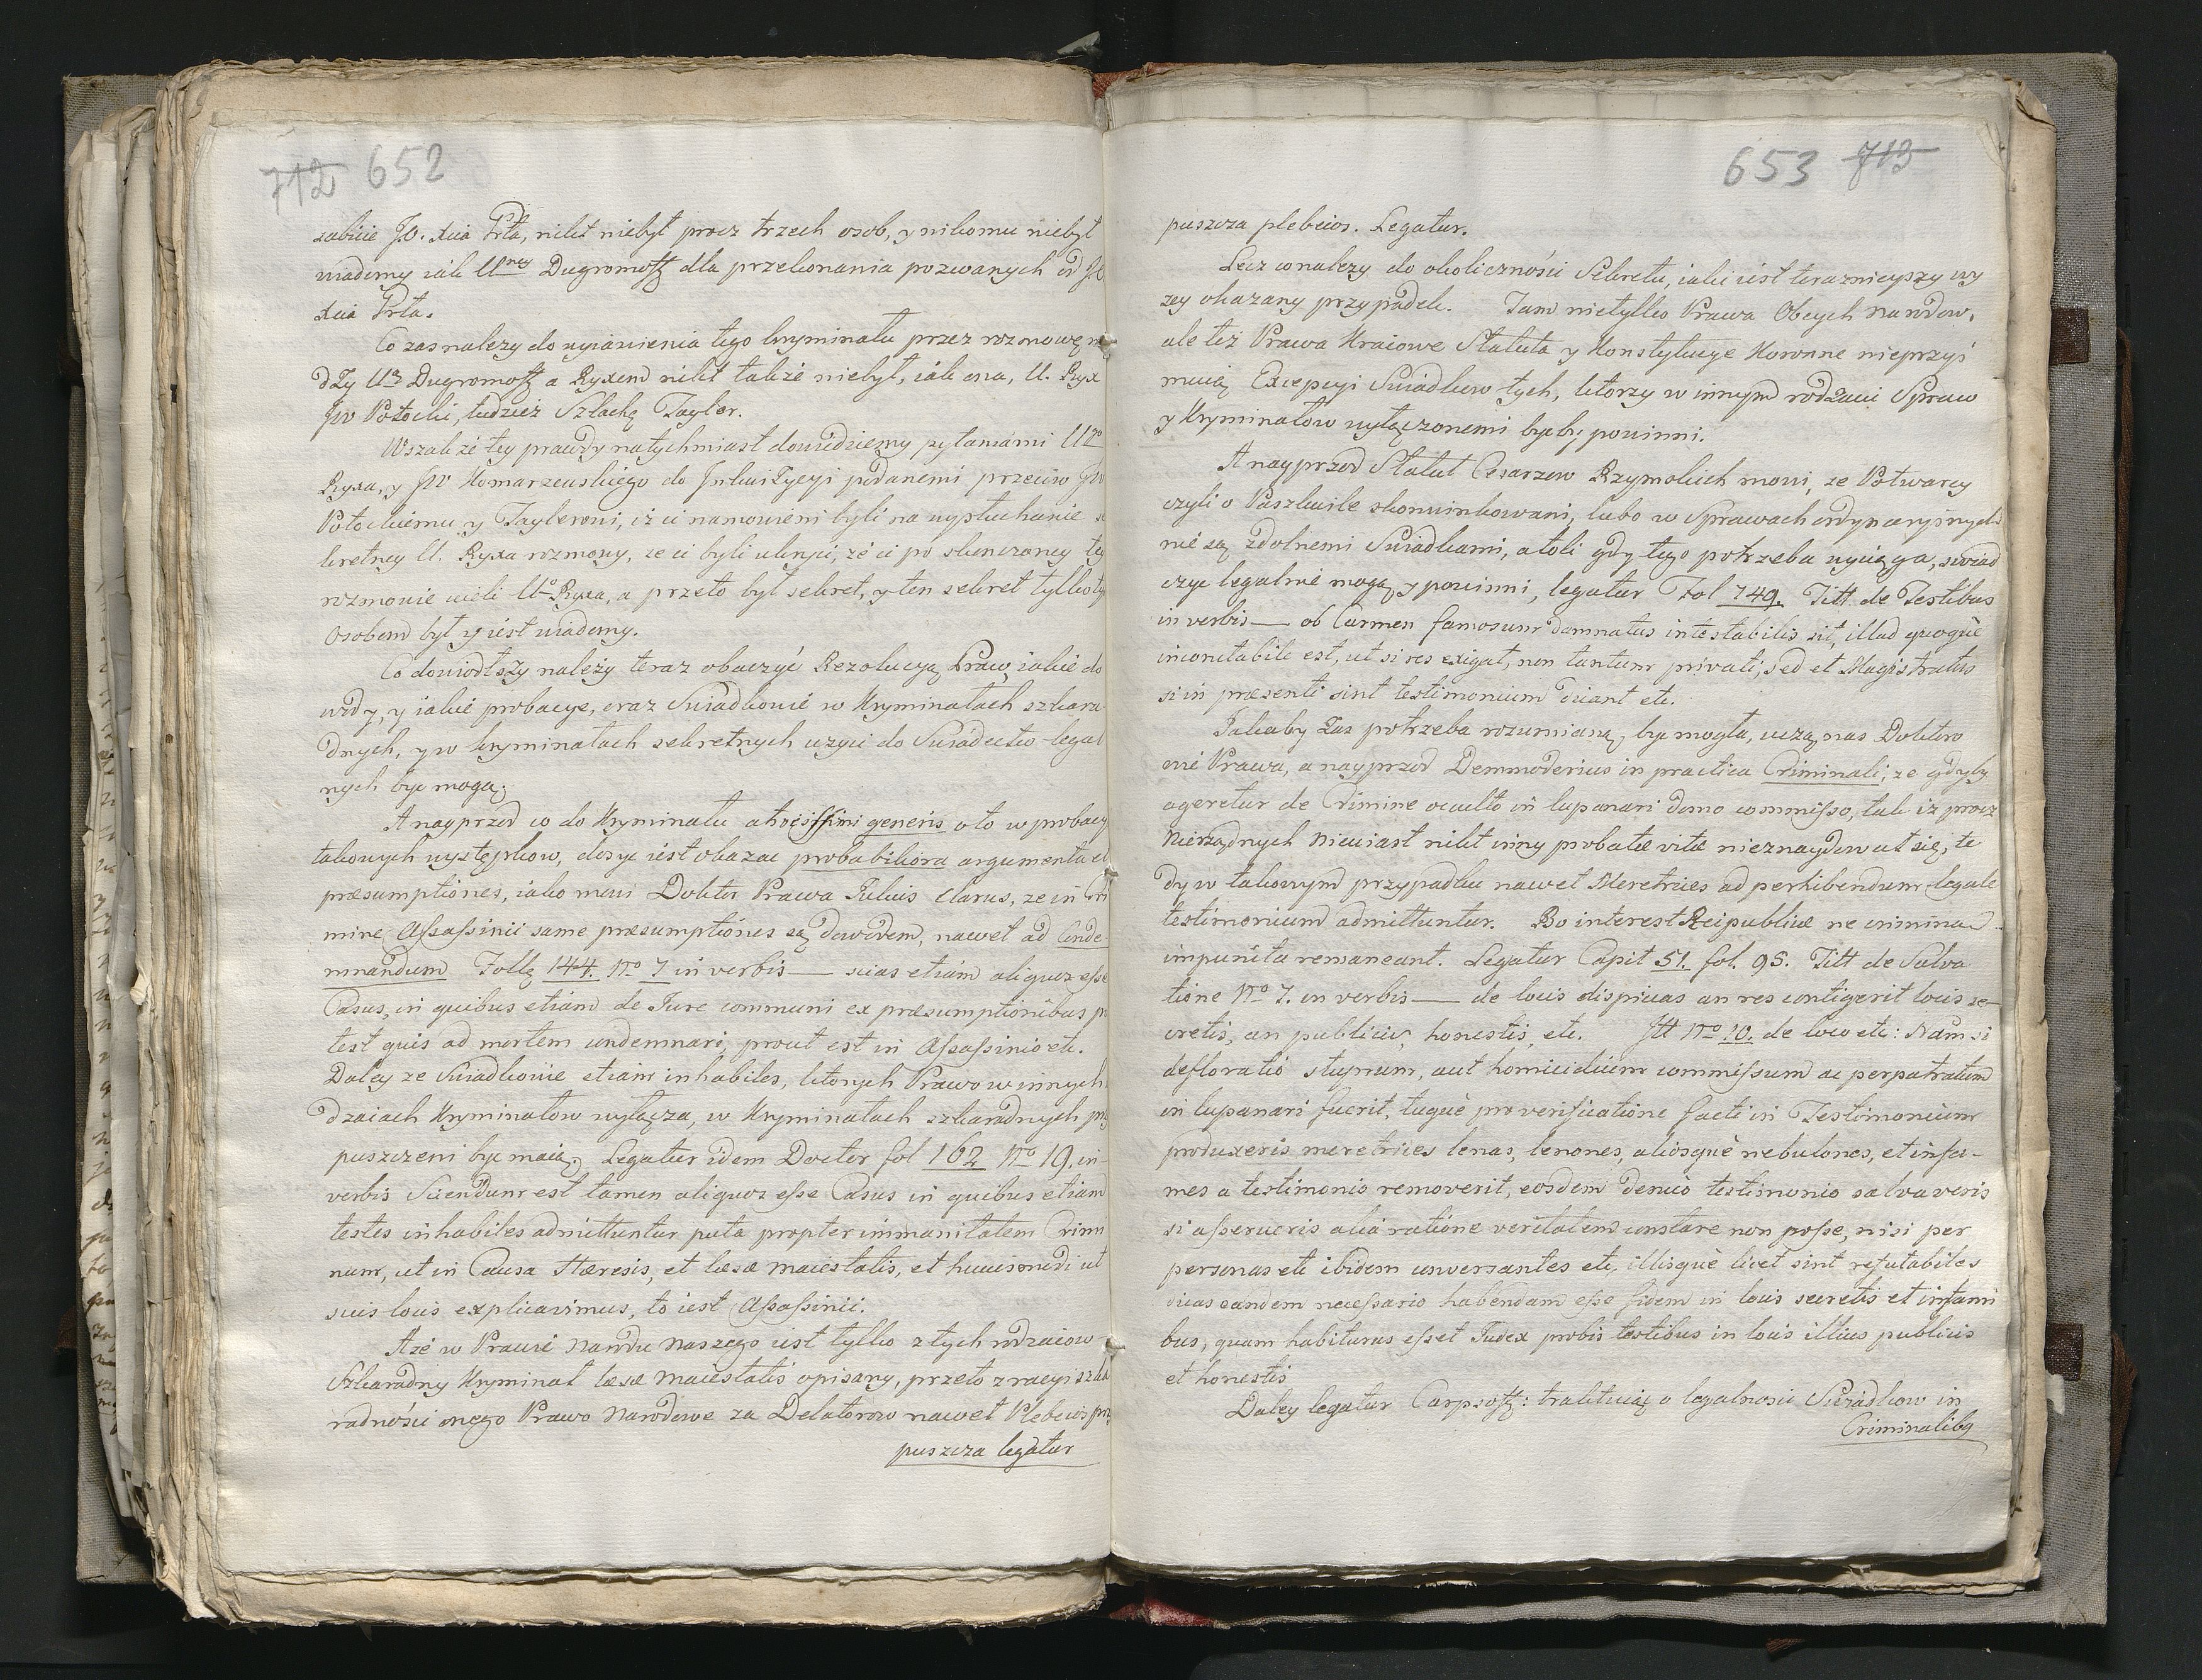 712 652
zabicie J.O. Xcia Grła, nikt niebył procz trzech osob, y nikomu niebył
wiadomy iak Uney Dugromoff dla przekonania pozwanych od JO
Xcia Grła.
Co zas nalezy do wyiawienia tego kryminału przez rozmowę
dzy Uą Dugromoff a Ryxem nikt także niebył, iak ona, U. Ryx
JW Potocki, tudzież Szlachę Tayler.
Wszakże tey prawdy natychmiast dowidziemy pytaniami Uo
Ryxa, y JW Komarzewskiego do Inkwizycyi podanemi przeciwo JW
Potockiemu y Taylerowi, iż ci namowieni byli na wysłuchanie se
kretney U. Ryxa rozmowy, ze ci byli ukryci, że ci po skonczoney tey
rozmowie wieli Uo Ryxa, a przeto był sekret, y ten sekret tylko tym
Osobom był y iest wiadomy.
Co dowiodłszy należy teraz obaczyć Rezolucyą Praw, iakie do
wody, y iakie probacye, oraz Swiadkowie w Kryminałach szkara
dnych, y w kryminałach sekretnych uzyci do Swiadectw legal
nych byc mogą.
A nayprzod co do Kryminału atrocissimi generis oto w probacyi
takowych występkow, dosyc iest okazac probabiliora argumenta et
præsumptiones, iako mowi Doktor Prawa Julius Clarus, ze in Cri
mine Assassinii same præsumptiones są dowodem, nawet ad Conde
mnandum Follę 144. No 7 in verbis — scias etiam aliquos esse
Casus, in quibus etiam de Jure communi ex præsumptionibus po
test quis ad mortem condemnari, prout est in Assassinio etc.
Daley ze Swiadkowie etiam inhabiles, ktorych Prawo w innych
dzaiach Kryminałow wyłącza, w Kryminałach szkaradnych przy
puszczeni byc maią. Legatur idem Doctor fol 162 No 19. in
verbis Sciendum est tamen aliquos esse Casus in quibus etiam
testes inhabiles admittuntur puta propter immanitatem Crimi
num, ut in Causa Hæresis, et læsæ maiestatis, et huiusmodi ut
suis locis explicavimus, to iest Assassinii.
A że w Prawie Narodu Naszego iest tylko z tych rodzaiow
Szkaradny Kryminał læsæ maiestatis opisany, przeto z racyi szka
radności onego Prawo Narodowe za Delatorow nawet Plebeios przy
puszcza legatur
653 713
puszcza plebeios. Legatur.
Lecz co nalezy do okoliczności Sekretu, iaki iest teraznieyszy wy
zey okazany przypadek. Tam nietylko Prawa Obcych Narodow,
ale też Prawa Kraiowe Statuta y Konstytucye Koronne nieprzyi
muią Excepcyi Swiadkow tych, ktorzy w innym rodzaiu Spraw
y Kryminałow wyłączonemi byćby powinni.
A nayprzod Statut Cesarzow Rzymskich mowi, ze Potwarcy
czyli o Paszkwile skonwinkowani, lubo w Sprawach ordynaryinych
nie są zdolnemi Swiadkami, atoli gdy tego potrzeba wyciąga, swiad
czyc legalnie mogą, y powinni, legatur Fol 749. Titt. de Testibus
in verbis — ob Carmen famosum damnatus intestabilis sit, illud quoquè
incontabile est, ut si res exigat, non tantum privati, sed et Magistratus
si in præsenti sint testimonium dicant etc.
Jakaby zas potrzeba rozumianą byc mogła, uczą nas Dokto
wie Prawa, a nayprzod Demmoderius in practica Criminali, ze gdyby
ageretur de Crimine occulto in lupanari domo commisso, tak iz procz
Nierządnych Niewiast nikt inny probatæ vitæ nieznaydował się, te
dy w takowym przypadku nawet Meretrices ad perhibendum legale
testimonium admittuntur. Bo interest Reipublicæ ne crimina
impunita remaneant. Legatur Capit 51. fol. 95. Titt de Salva
tione No 7. in verbis — de locis dispicias an res contigerit locis se
cretis, an publicis, honestis, etc. Itt No 10. de loco etc: Nam si
defloratio stuprum, aut homicidium commissum ac perpatratum
in lupanari fuerit, tuquè pro verificatione facti in Testimonium
produxeris meretrices lenas, lenones, aliosquè nebulones, et infa-
mes a testimonio removerit, eosdem denuò testimonio salvaveris
si asserueris aliâ ratione veritatem constare non posse, nisi per
personas etc ibidem conversantes etc, illisquè licet sint refutabiles
dicas eandem necessario habendam esse fidem in locis secretis et infami
bus, quam habiturus esset Judex probis testibus in locis illius publicis
et honestis
Daley legatur Carpsoff: traktuiąc o legalnosci Swiadkow in
Criminalibq